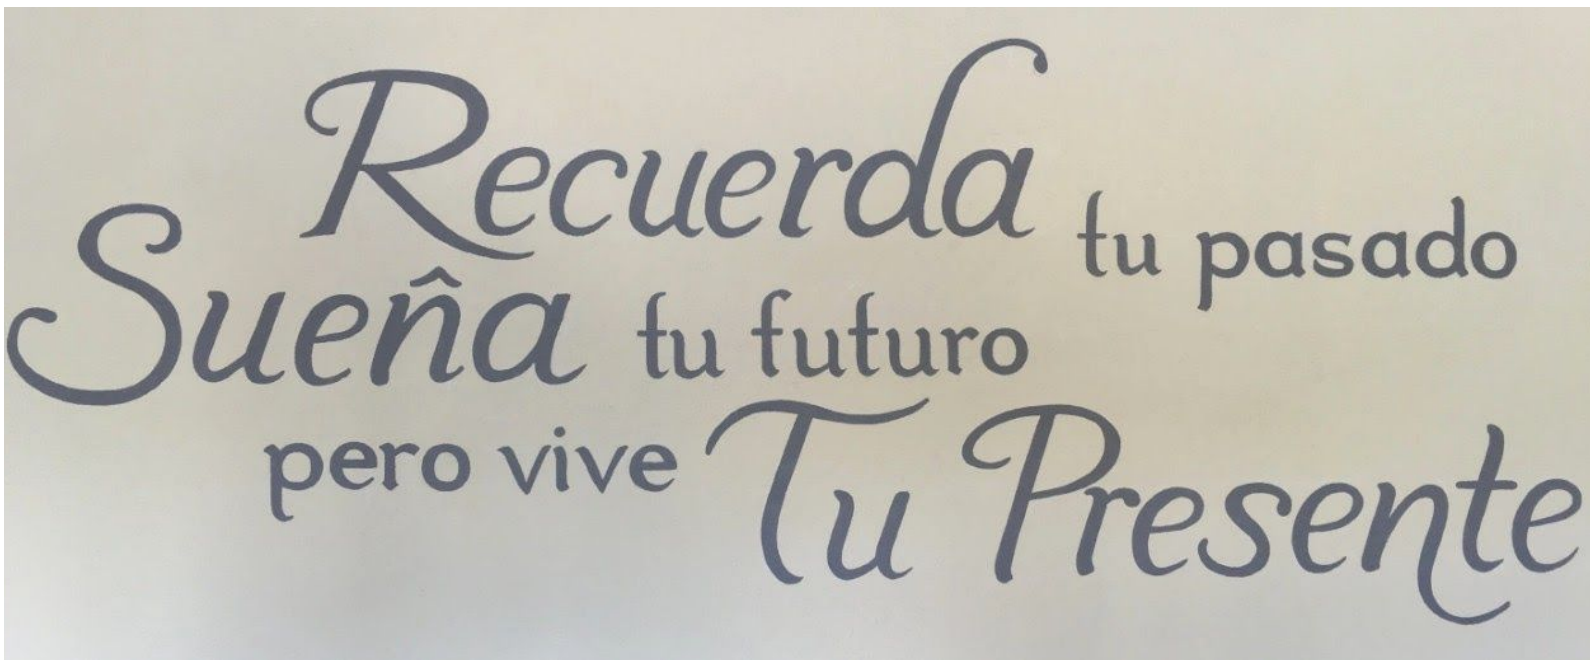 Recuerda tu pasado
Sueña tu futuro
pero vive Tu Presente